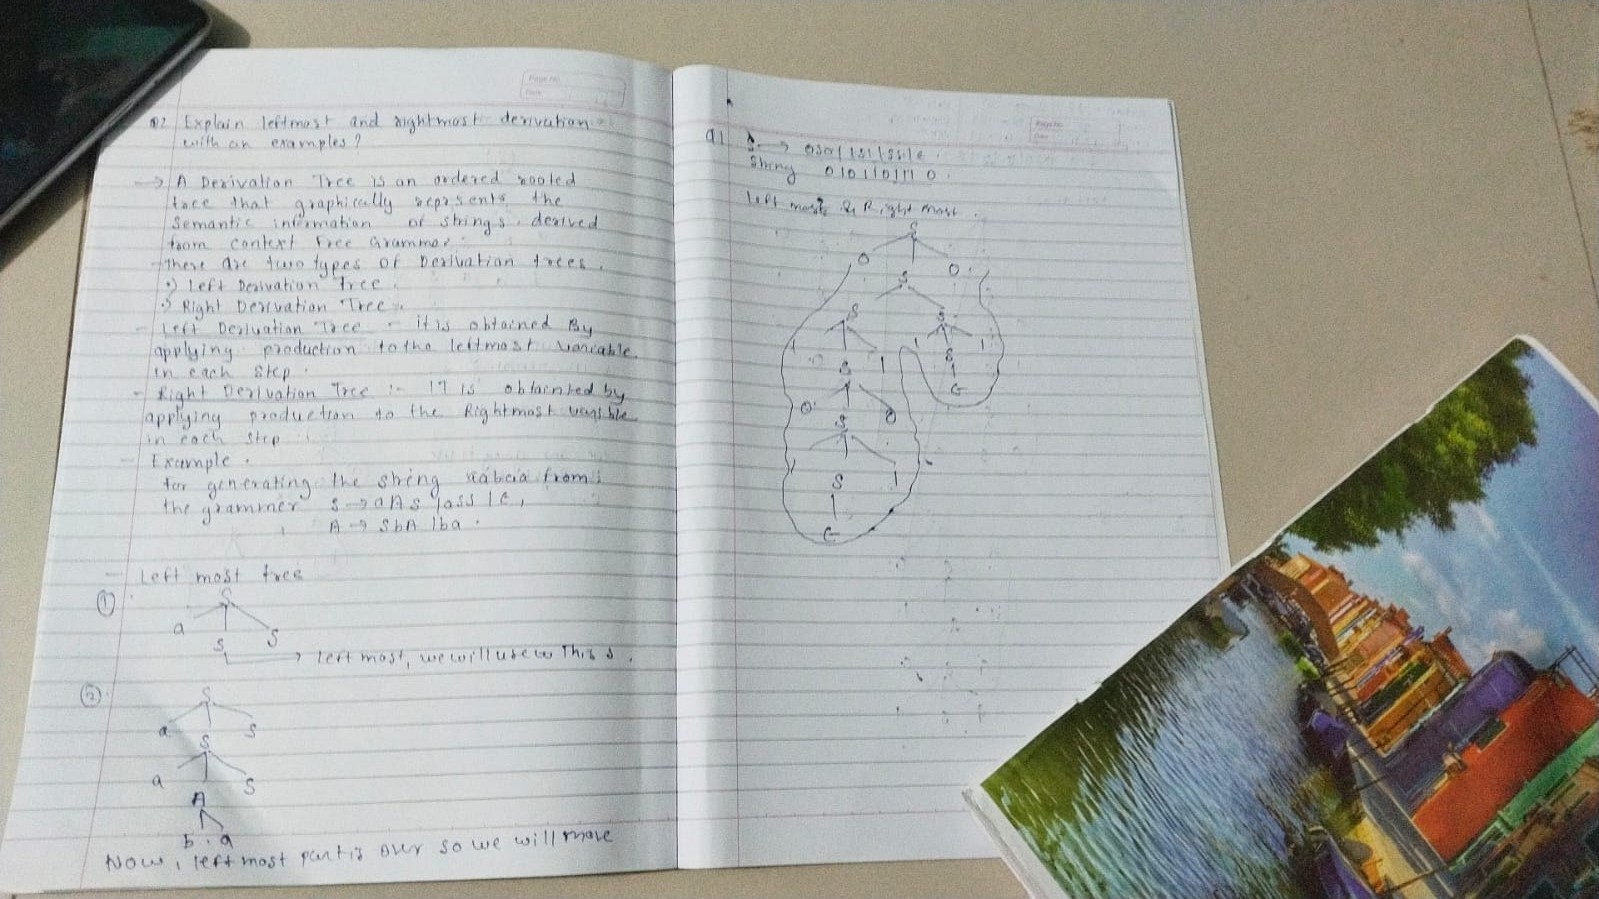 Page No.
Date
Q2 Explain leftmost and rightmost derivation
with an examples?
→ A Derivation Tree is an ordered rooted
tree that graphically represents the
semantic information of strings derived
from context Free Grammar.
- There are two types of Derivation trees.
Left Derivation Tree.
Right Derivation Tree.
- Left Derivation Tree - it is obtained By
applying production to the leftmost variable
in each step.
- Right Derivation Tree :- IT is obtainted by
applying production to the Rightmost variable
in each step
- Example.
for generating the string from
the grammer S → aAS |aSS |ϵ,
A → SbA |ba.
- Left most tree
①
S
a S S
→ left most, we will use this S.
②
S
a S S
a A S
b a
Now, left most part is over so we will move
Page No.
Date
Q1 S → 0S0|1S1|SS|ϵ.
String
left most & Right most.
S
0 S 0
S S
1 S 1 1 S 1
0 S 0 ϵ
1 S 1
ϵ